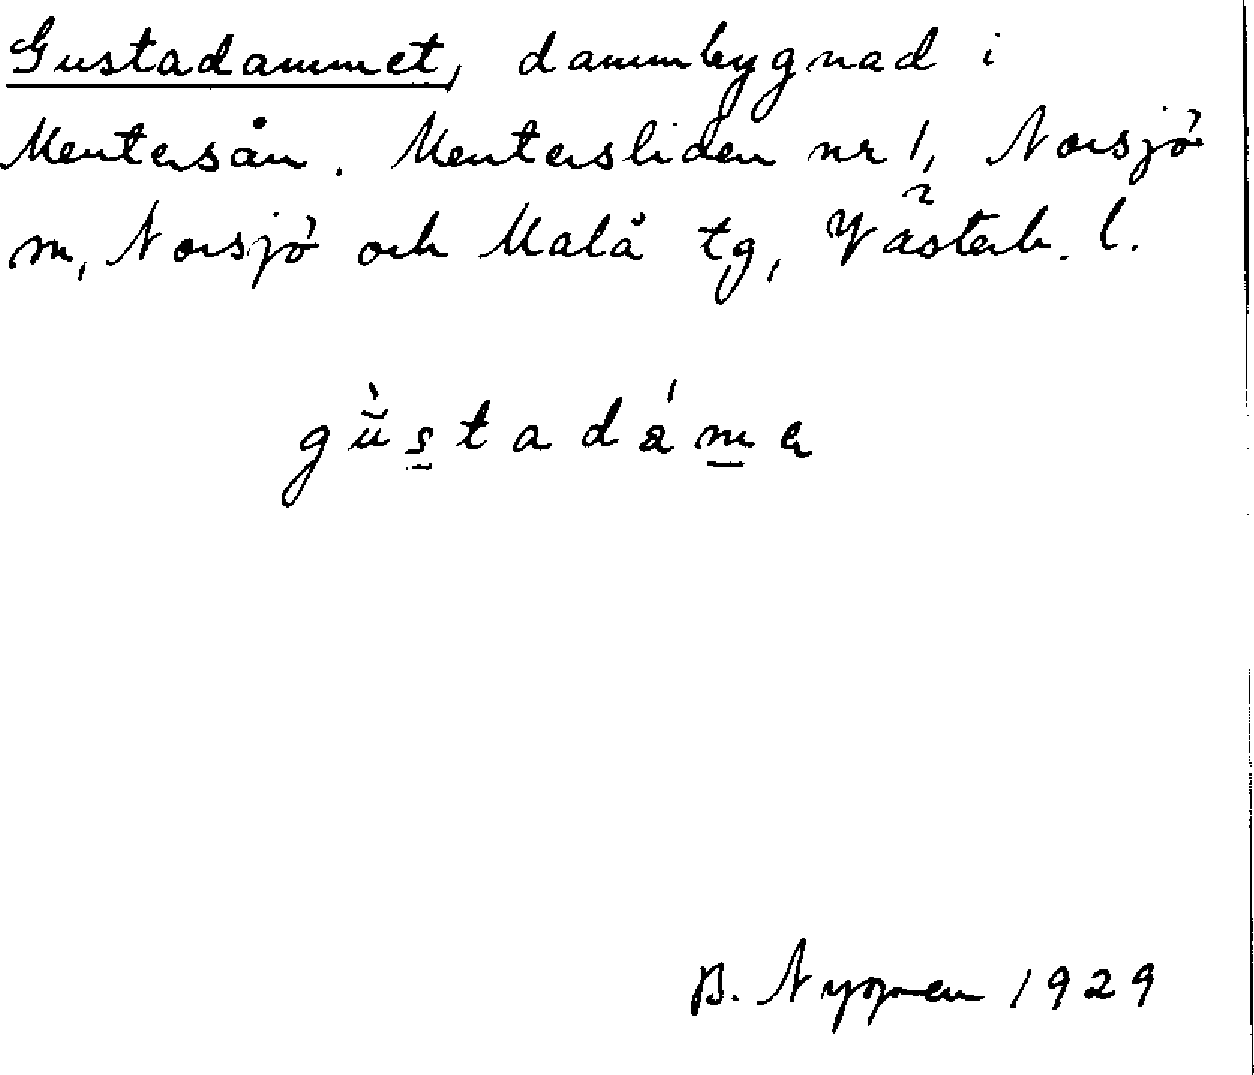 Gustadammet, dammbygnad i
Mentersån. Mentersliden nr 1, Norsjö
m, Norsjö och Malå tg, Västerb. l.
gùstadáma
B. Nyman 1929